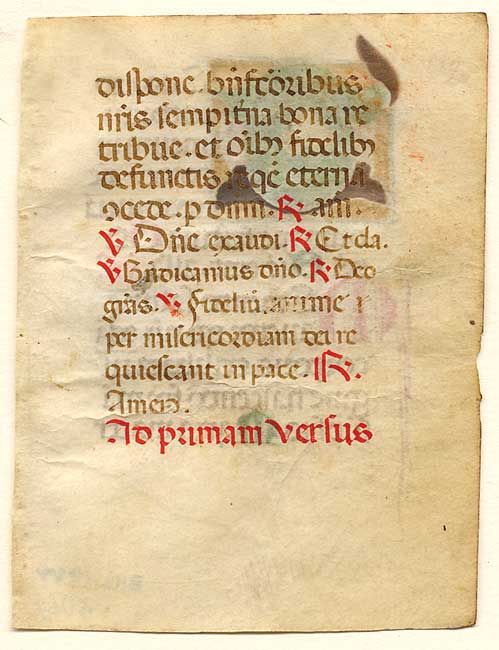 dispone. bn̄fcōribus
nr̄is sempit̄na bona re
tribue. et oīb3 fidelib3
defunctis reqē eterna
ꝯcede. p dnm̄. ℟. am̄.
℣ Dn̄e exaudi. ℟ Et cla.
℣ Bn̄dicamus dn̄o. ℟ Deo
grās. ℣ Fideliū. anime ꝛ
per misericordiam dei re
quiescant in pace. ℟.
Amen.
Ad primam versus